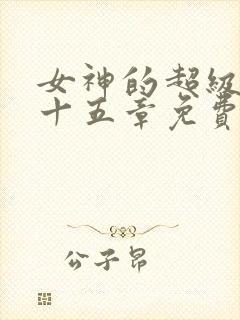 女神的超级
十五章免费
公子昂